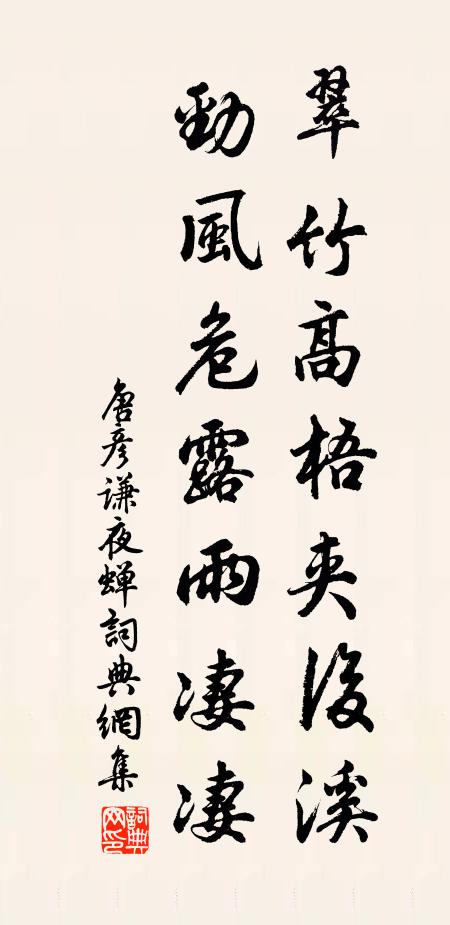 翠竹高梧夹後溪
勁風危露雨凄凄
唐彦谦夜蝉詞典網集
詞典网印